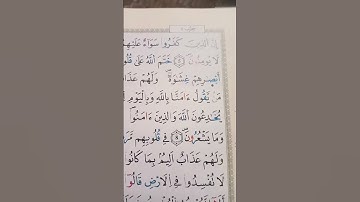 إِنَّ ٱلذِينَ كَفَرُواْ سَوَآءٌ عَلَيْهِمُ
لَا يُومِنُونَ خَتَمَ ٱللَّهُ عَلَىٰ
أَبْصَٰرِهِمْ غِشَٰوَةٌ وَلَهُمْ
مَنْ يَّقُولُ ءَامَنَّا بِاللَّهِ وَبِالْيَوْمِ
يُخَٰدِعُونَ ٱللَّهَ وَٱلذِينَ ءَامَنُواْ
وَمَا يَشْعُرُونَ فِي قُلُوبِهِم
وَلَهُمْ عَذَابٌ أَلِيمٌ بِمَا كَانُواْ
لَا تُفْسِدُواْ فِي ٱلَارْضِ قَالُوٓاْ